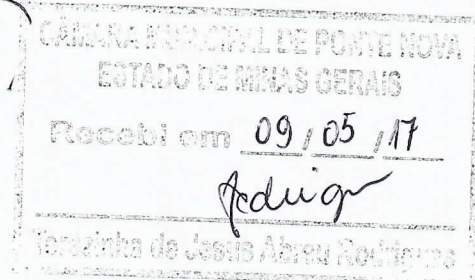 CÂMARA MUNICIPAL DE PONTE NOVA
ESTADO DE MINAS GERAIS
Recebi em 09/05/17
Terezinha de Jesus Abreu Rodrigues